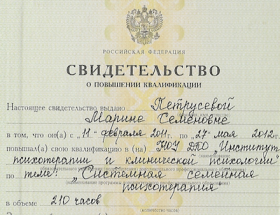 РОССИЙСКАЯ ФЕДЕРАЦИЯ
СВИДЕТЕЛЬСТВО
О ПОВЫШЕНИИ КВАЛИФИКАЦИИ
Настоящее свидетельство выдано Петрусевой
Марине Семеновне
в том, что он(а) с «11» февраля 2011г. по «27» мая 2012г.
повышал(а) свою квалификацию в (на) НОУ ДПО "Институт
психотерапии и клинической психологии"
по теме: "Системная семейная
психотерапия"
в объеме 210 часов